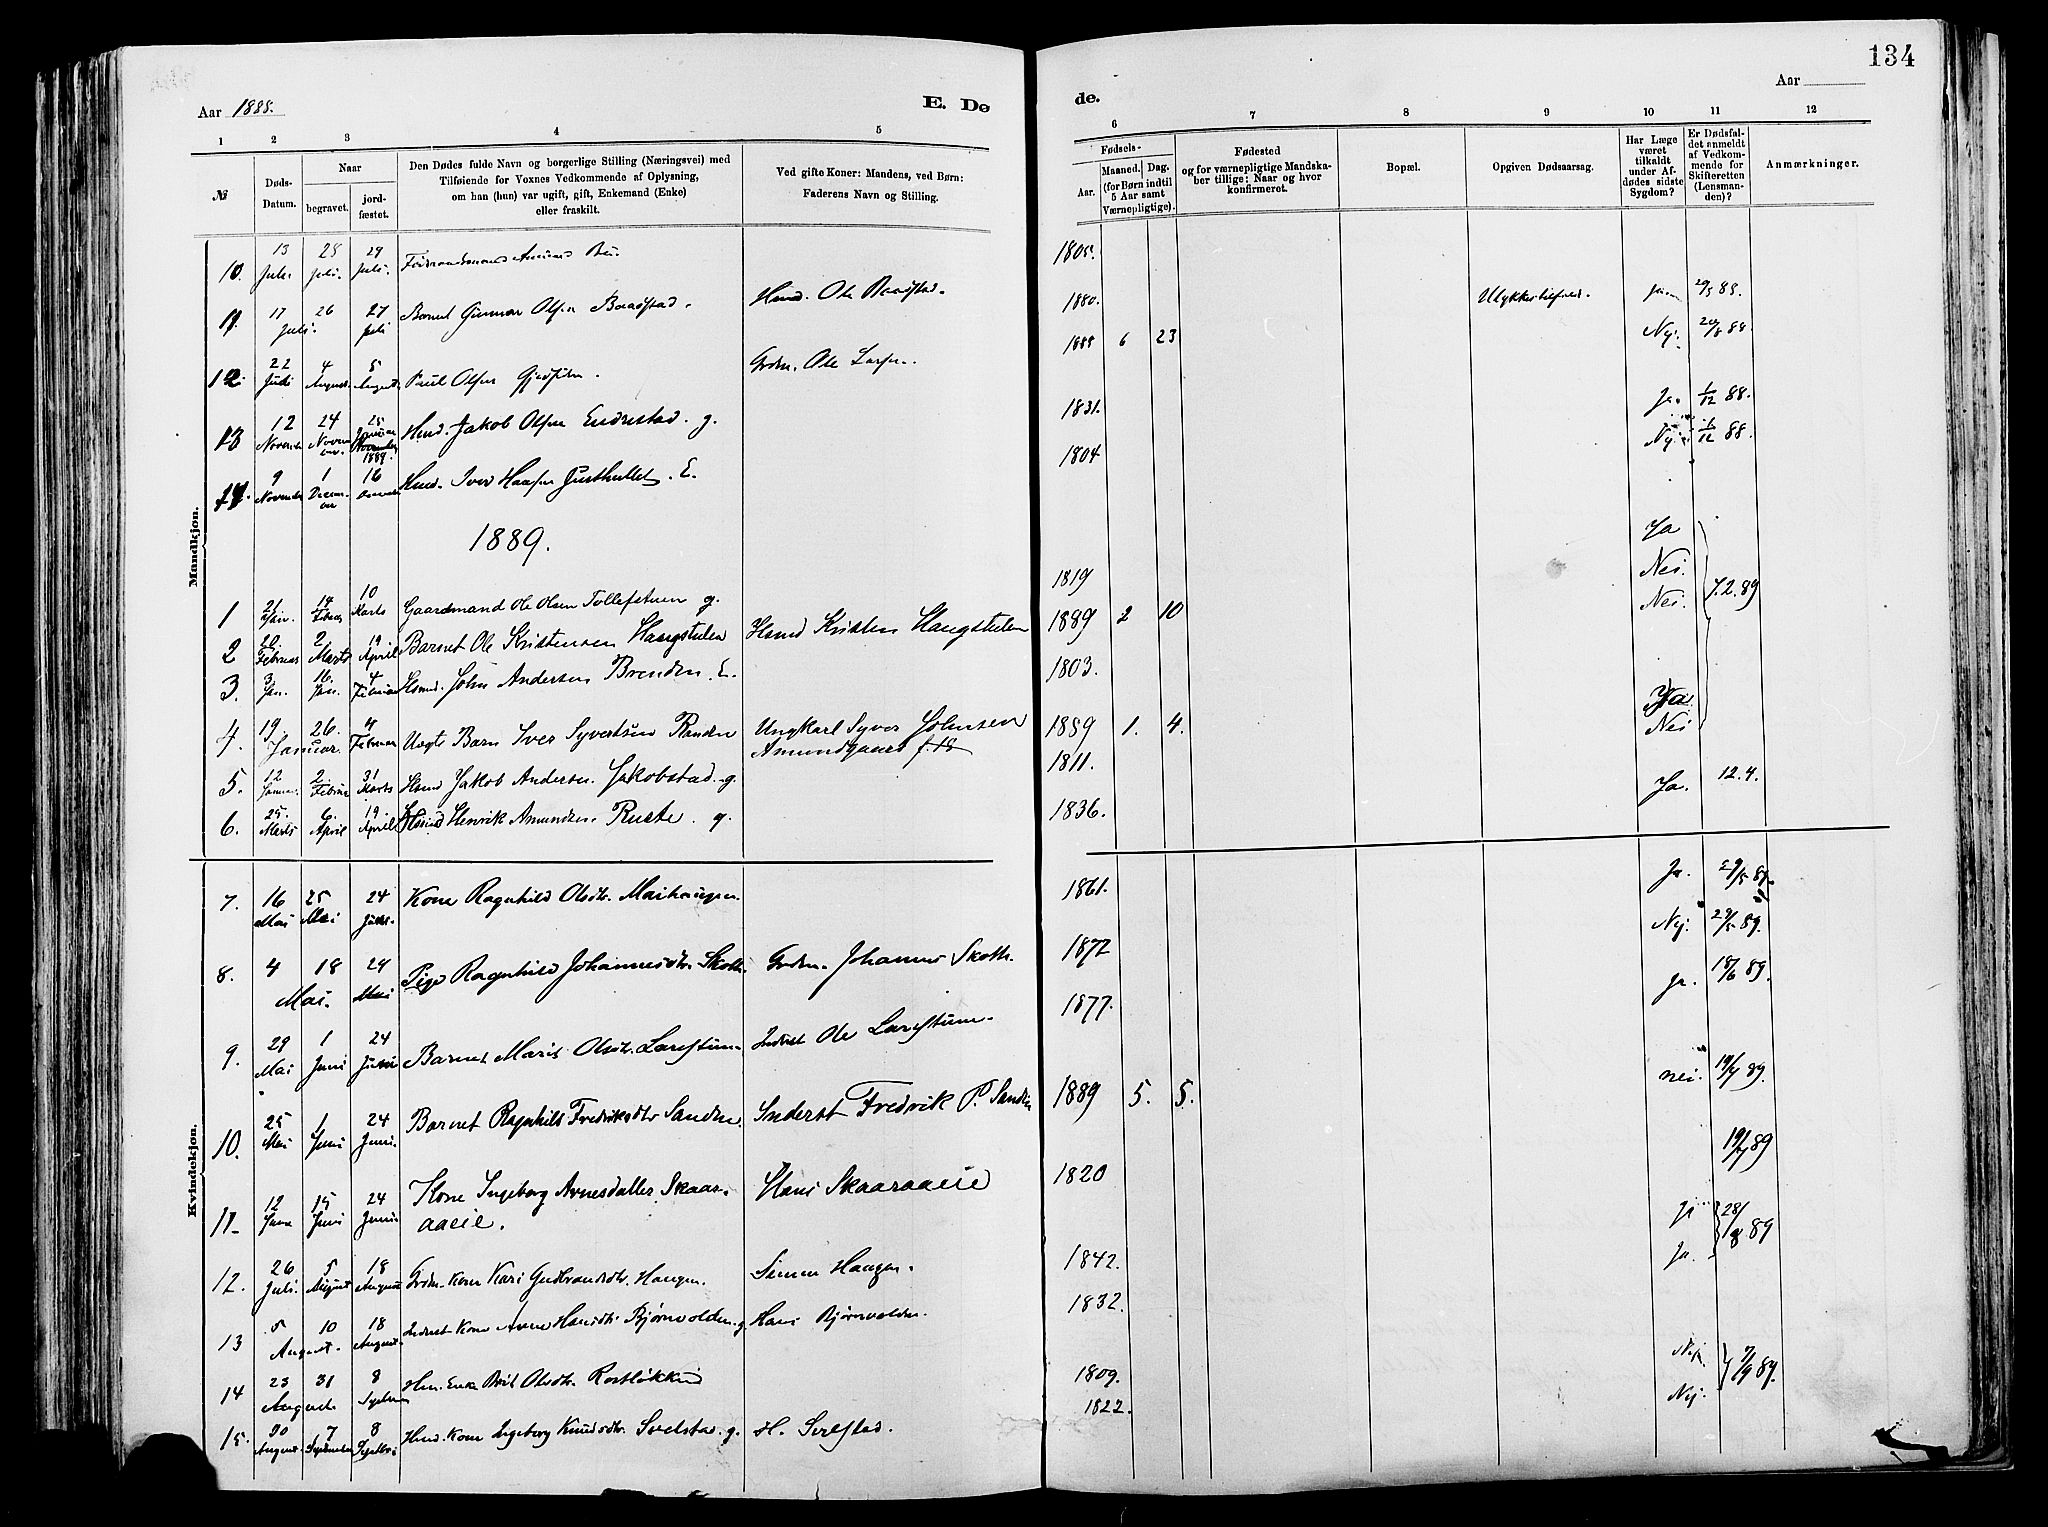 134
Aar 1888.
E. Dø
de.
Aar
1 2 3 4 5 6 7 8 9 10 11 12
№
Døds-Datum.
Naar
begravet.
jord-fæstet.
Den Dødes fulde Navn og borgerlige Stilling (Næringsvei) med
Tilføiende for Voxnes Vedkommende af Oplysning,
om han (hun) var ugift, gift, Enkemand (Enke)
eller fraskilt.
Ved gifte Koner: Mandens, ved Børn:
Faderens Navn og Stilling.
Fødsels-
Aar.
Maaned. Dag.
(for Børn indtil
5 Aar samt
Værnepligtige).
Fødested
og for værnepligtige Mandska-
ber tillige: Naar og hvor
konfirmeret.
Bopæl.
Opgiven Dødsaarsag.
Har Læge
været
tilkaldt
under Af-
dødes sidste
Sygdom?
Er Dødsfal-
det anmeldt
af Vedkom-
mende for
Skifteretten
(Lensman-
den)?
Anmærkninger.
Mandkjøn.
10. 13 Juli. 28 Juli. 29 Juli. 1805.
11. 17 26 Juli. 27 Juli Barnet Gunnar Olsen Baadstad. Husmd. Ole Baadstad. 1880. Ulykkestilfælde. Ja
12. 22 Juli 4 August 5 August Paul Olsen Grdm. Ole Larsen. 1888 6 23 Nej. 20/8 88.
13 12 November 24 November 25 Januar 1889. Husmd. Jakob Olsen Endrestad. g. 1831. Ja. 1/12 88.
14. 9 November 1 December 16 Husmd. Iver E. 1804 Nej. 1/12 88.
1889.
1 21 Jan. 14 Februar 10 Marts Gaardmand Ole Olsen Tollefstuen g. 1819 Ja
2 20 Februar 2 Marts 19 April Barnet Ole Kristensen Haugstulen Husmd Kristen Haugstulen 1889 2 10 Nei.
3. 3. Jan. 16. Jan. 4 Februar Husmd. John Andersen Brenden. E. 1803. Nei. 7.2.89
4. 19. 26. Januar. 4 Februar Uægte Barn Iver Syvertsen Randen Ungkarl Syver Johnsen
Amundgaard f. 18 1889 1. 4.
5. 12 Januar 2. Februar 31 Marts Husmd Jakob Andersen Jakobstad. g. 1811. Nei
6. 25. Marts 6. April 19 April Husmd Henrik Amundsen Ruste. g. 1836. Ja. 12.4.
Kvindekjøn.
7. 16 Mai 25 Mai 24 Juni. Kone Ragnhild Olsdtr. Maihaugen. 1861. Ja. 29/5 89.
8. 4 18 Mai. 24 Mai Pige Ragnhild Johannesdtr. Skotte Grdm. Johannes Skotte. 1872 Nej. 29/5 89.
9. 29 Mai 1 Juni 24 Juni Barnet Marit Olsdtr. Larsstuen. Inderst Ole Larsstuen. 1877. Ja. 18/6 89.
10. 25 Mai 1 Juni 24 Juni. Barnet Ragnhild Fredriksdtr Sanden. Inderst Fredrik P. Sanden 1889 5. 5. nei. 19/7 89.
11. 12 Juni 15 Juni 24 Juni Kone Ingeborg Arnesdatter Skaar-
aaeie. Hans Skaaraaeie 1820 19/7 89
12. 26 Juli. 5 August 18 August Grdm. Kone Kari Gudbrandsdtr. Haugen. Simen Haugen. 1842. Ja 28/8 89
13 5 10 August. 18 August. Inderst Kone Anne Hansdtr Bjørnvolden. g. Hans Bjørnvolden. 1832. Ja.
14 23 31 August 8 Septem Hsm. Enke Brit Olsdtr. Rostløkken 1809. Nej. 7/9 89.
15. 30 August. 7 September 8 Septbr. Husmd. Kone Ingeborg Knudsdtr. g. H. 1822. Nej.